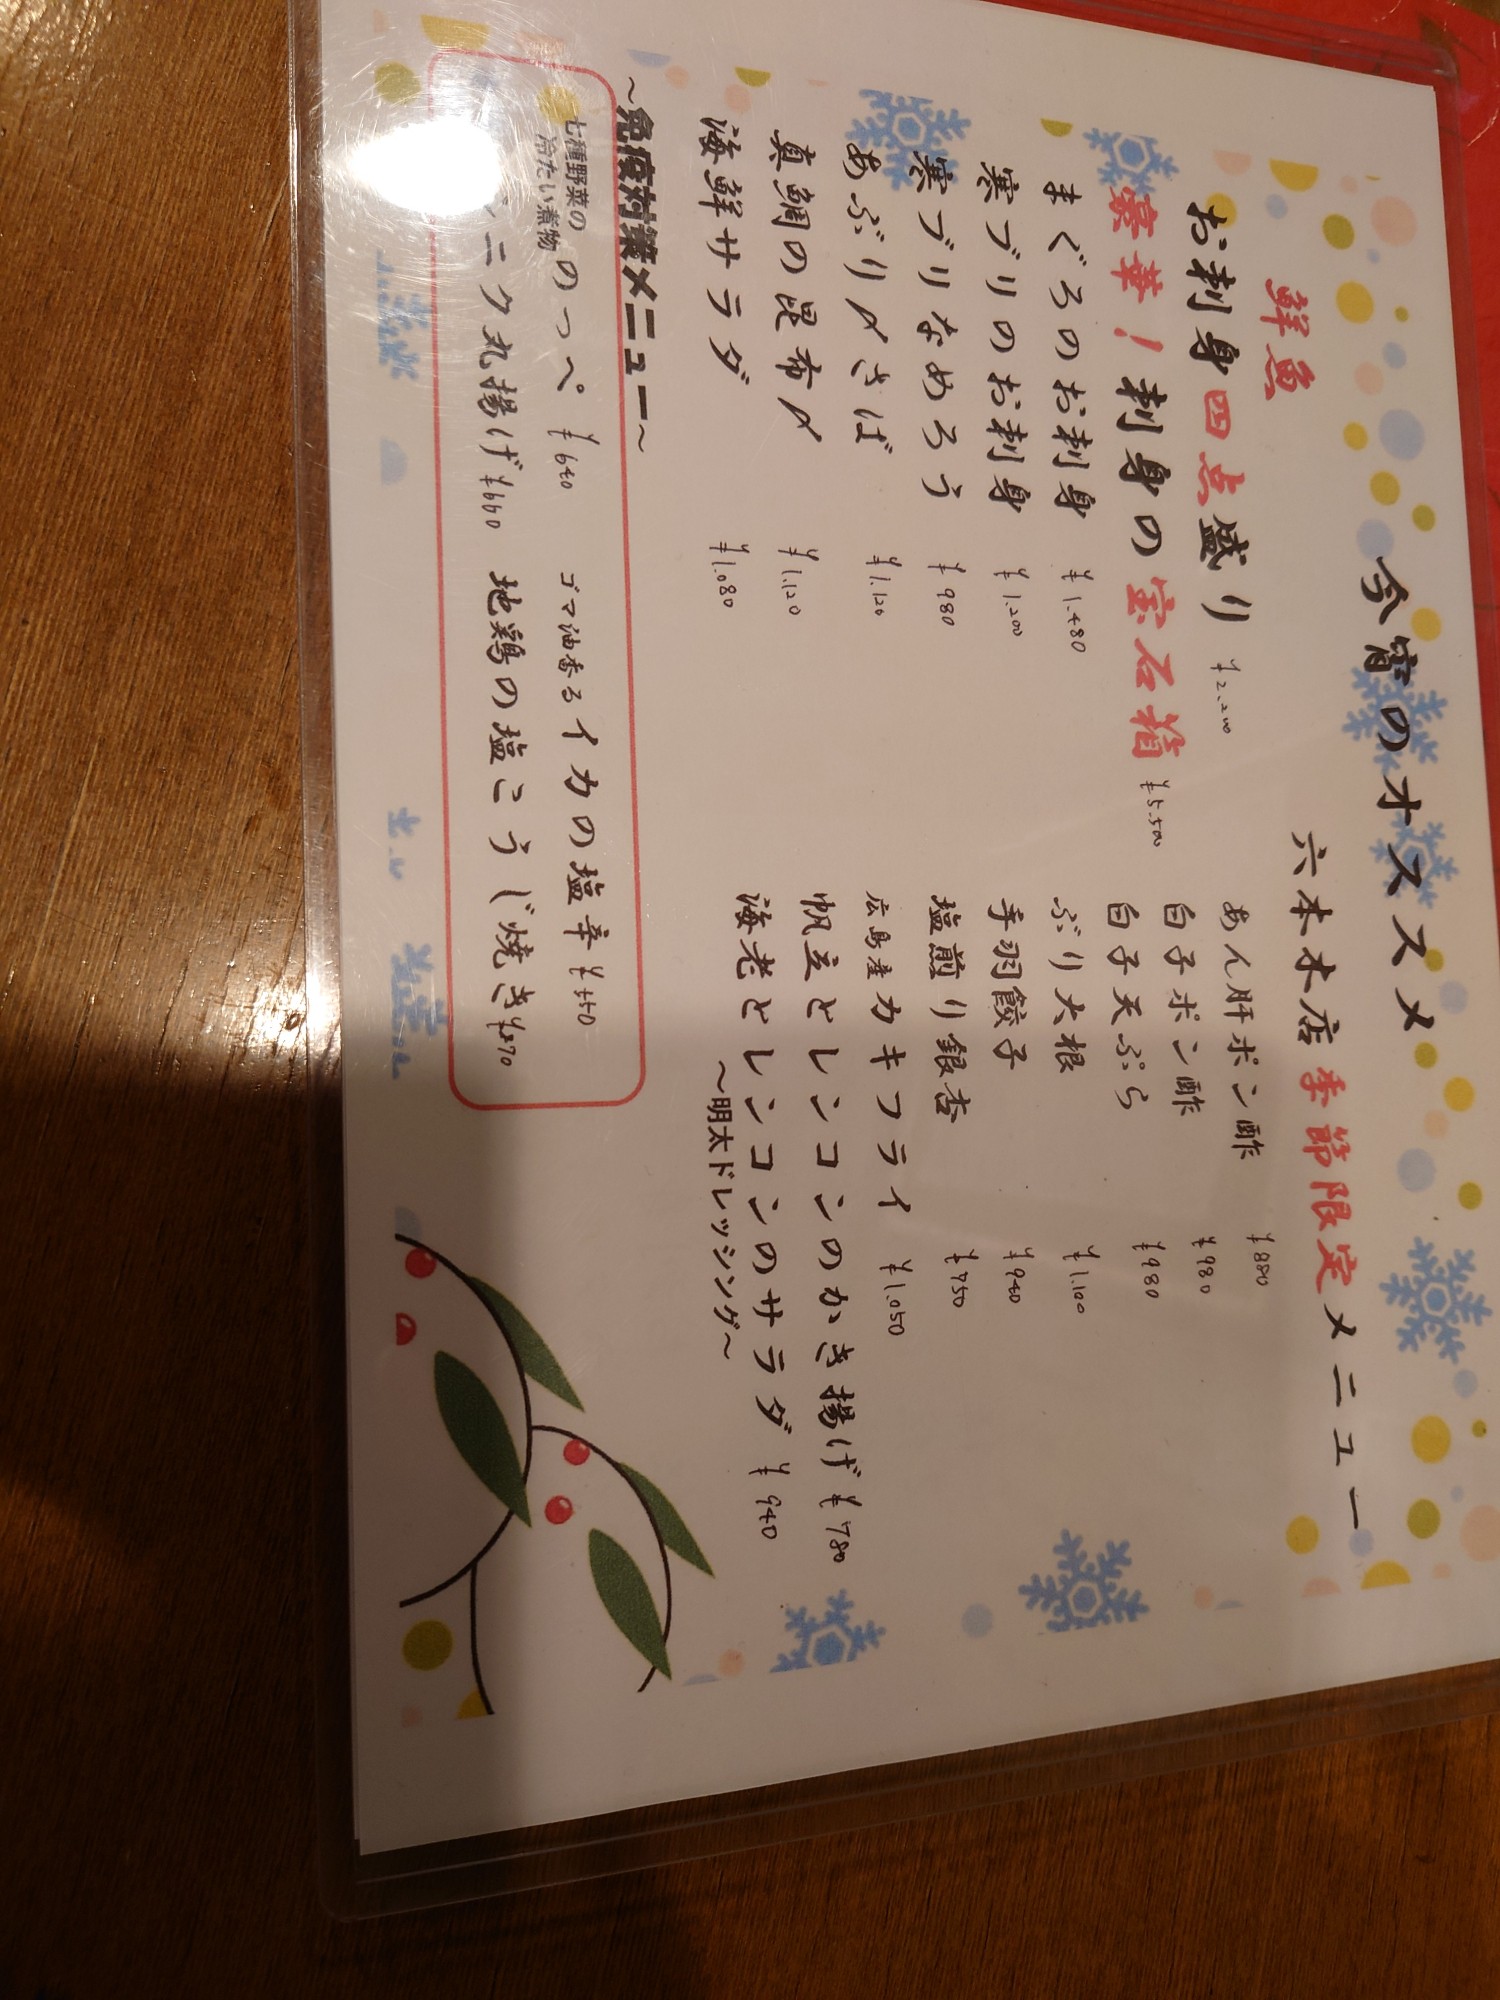 今宵のオススメ
鮮魚
お刺身四点盛り ¥2,200
豪華!刺身の宝石箱 ¥5,500
まぐろのお刺身 ¥1,480
寒ブリのお刺身 ¥1,200
寒ブリなめろう ¥980
あぶり〆さば ¥1,120
真鯛の昆布〆 ¥1,120
海鮮サラダ ¥1,080
六本木店季節限定メニュー
あん肝ポン酢 ¥880
白子ポン酢 ¥980
白子天ぷら ¥980
ぶり大根 ¥1,100
手羽餃子 ¥940
塩煎り銀杏 ¥750
広島産カキフライ ¥1,050
帆立とレンコンのかき揚げ ¥780
海老とレンコンのサラダ ¥940
〜明太ドレッシング〜
〜免疫対策メニュー〜
七種野菜の冷たい煮物 のっぺ ¥640
ゴマ油香るイカの塩辛 ¥550
ニク丸揚げ ¥660
地鶏の塩こうじ焼き